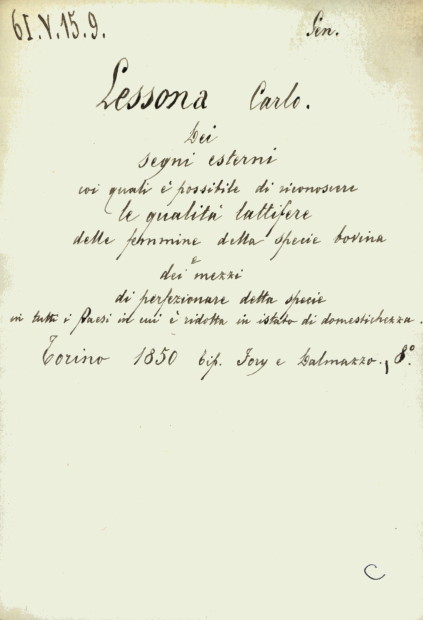 61.V.15.9. Sen.
Lessona Carlo.
Dei
segni esterni
coi quali è possibile di riconoscere
le qualità lattifere
delle femmine della specie bovina
e
dei mezzi
di perfezionare detta specie
in tutti i Paesi in cui è ridotta in istato di domestichezza.
Torino 1850 tip. Fory e Dalmazzo., 8.º
C